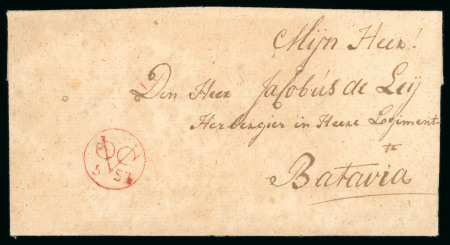 Mijn Heer!
Den Heer Jacobús de Leij
Herbergier in Heere Logiment
te
Batavia
VOC
5 St